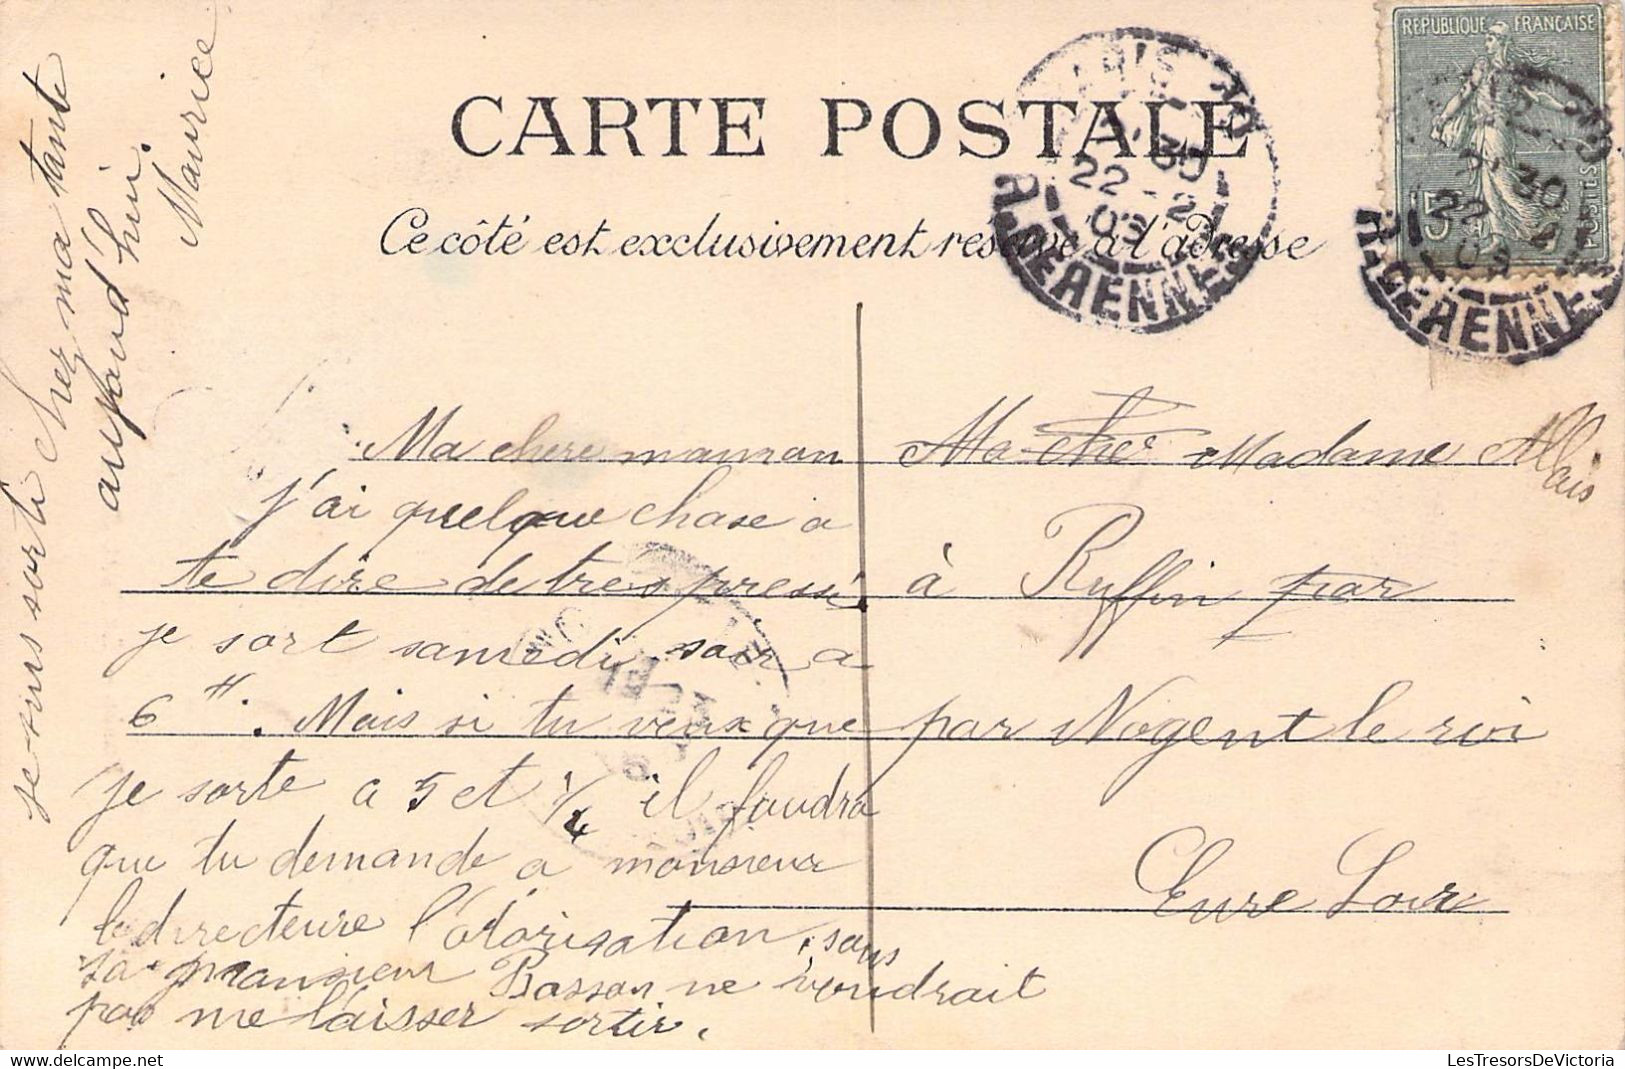 RÉPUBLIQUE FRANÇAISE
15
POSTES
CARTE POSTALE
Ce côté est exclusivement réservé à l'adresse
22 - 2
09
R. CLER
22 2
09
Ma chere maman
j'ai quelque chose a
te dire de tres pressé.
je sort samedi soir a
6 H. Mais si tu veux que
je sorte a 5 et 1/4 il faudra
que tu demande a monsieur
le directeure l'otorisation, sans
sa monsieur Basson ne voudrait
pas me laisser sortir.
je suis sorti chez ma tante
aujourd'hui.
Maurice
Ma cher Madame Allais
à Ruffin par
par Nogent le roi
Eure Loir
LesTresorsDeVictoria